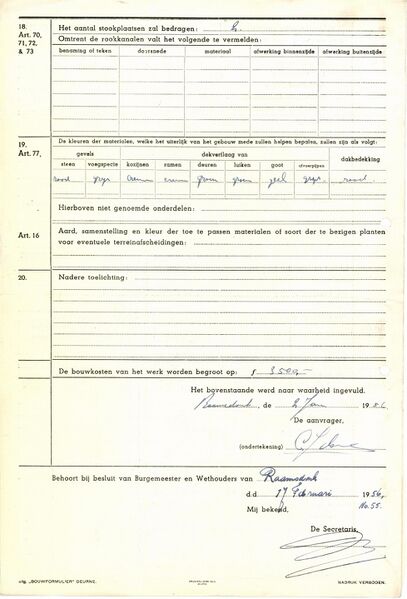 18.
Art. 70,
71, 72,
& 73
Het aantal stookplaatsen zal bedragen: 2.
Omtrent de rookkanalen valt het volgende te vermelden:
benaming of teken doorsnede materiaal afwerking binnenzijde afwerking buitenzijde
19.
Art. 77,
De kleuren der materialen, welke het uiterlijk van het gebouw mede zullen helpen bepalen, zullen zijn als volgt:
gevels dekverflaag van dakbedekking
steen voegspecie kozijnen ramen deuren luiken goot afvoerpijpen
rood grijs creme creme groen groen geel grijs rood
Hierboven niet genoemde onderdelen:
Art. 16
Aard, samenstelling en kleur der toe te passen materialen of soort der te bezigen planten
voor eventuele terreinafscheidingen:
20.
Nadere toelichting:
De bouwkosten van het werk worden begroot op: f 3500,-
Het bovenstaande werd naar waarheid ingevuld.
Raamsdonk, de 2 Jan 1956
De aanvrager,
(ondertekening)
Behoort bij besluit van Burgemeester en Wethouders van Raamsdonk
d.d. 17 Februari 1956,
Mij bekend, No. 55.
De Secretaris,
uitg. „BOUWFORMULIER" DEURNE.
NADRUK VERBODEN.